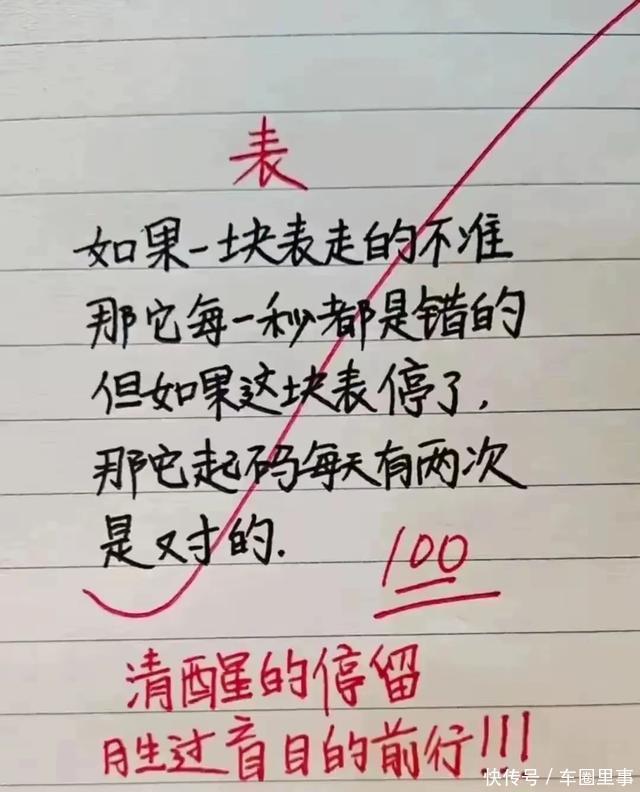 表
如果一块表走的不准
那它每一秒都是错的
但如果这块表停了,
那它起码每天有两次
是对的.
100
清醒的停留
胜过盲目的前行!!!
快传号/车圈里事